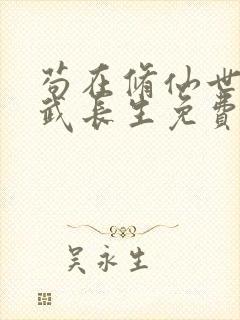 苟在脩仙世
武长生免費
吴永生